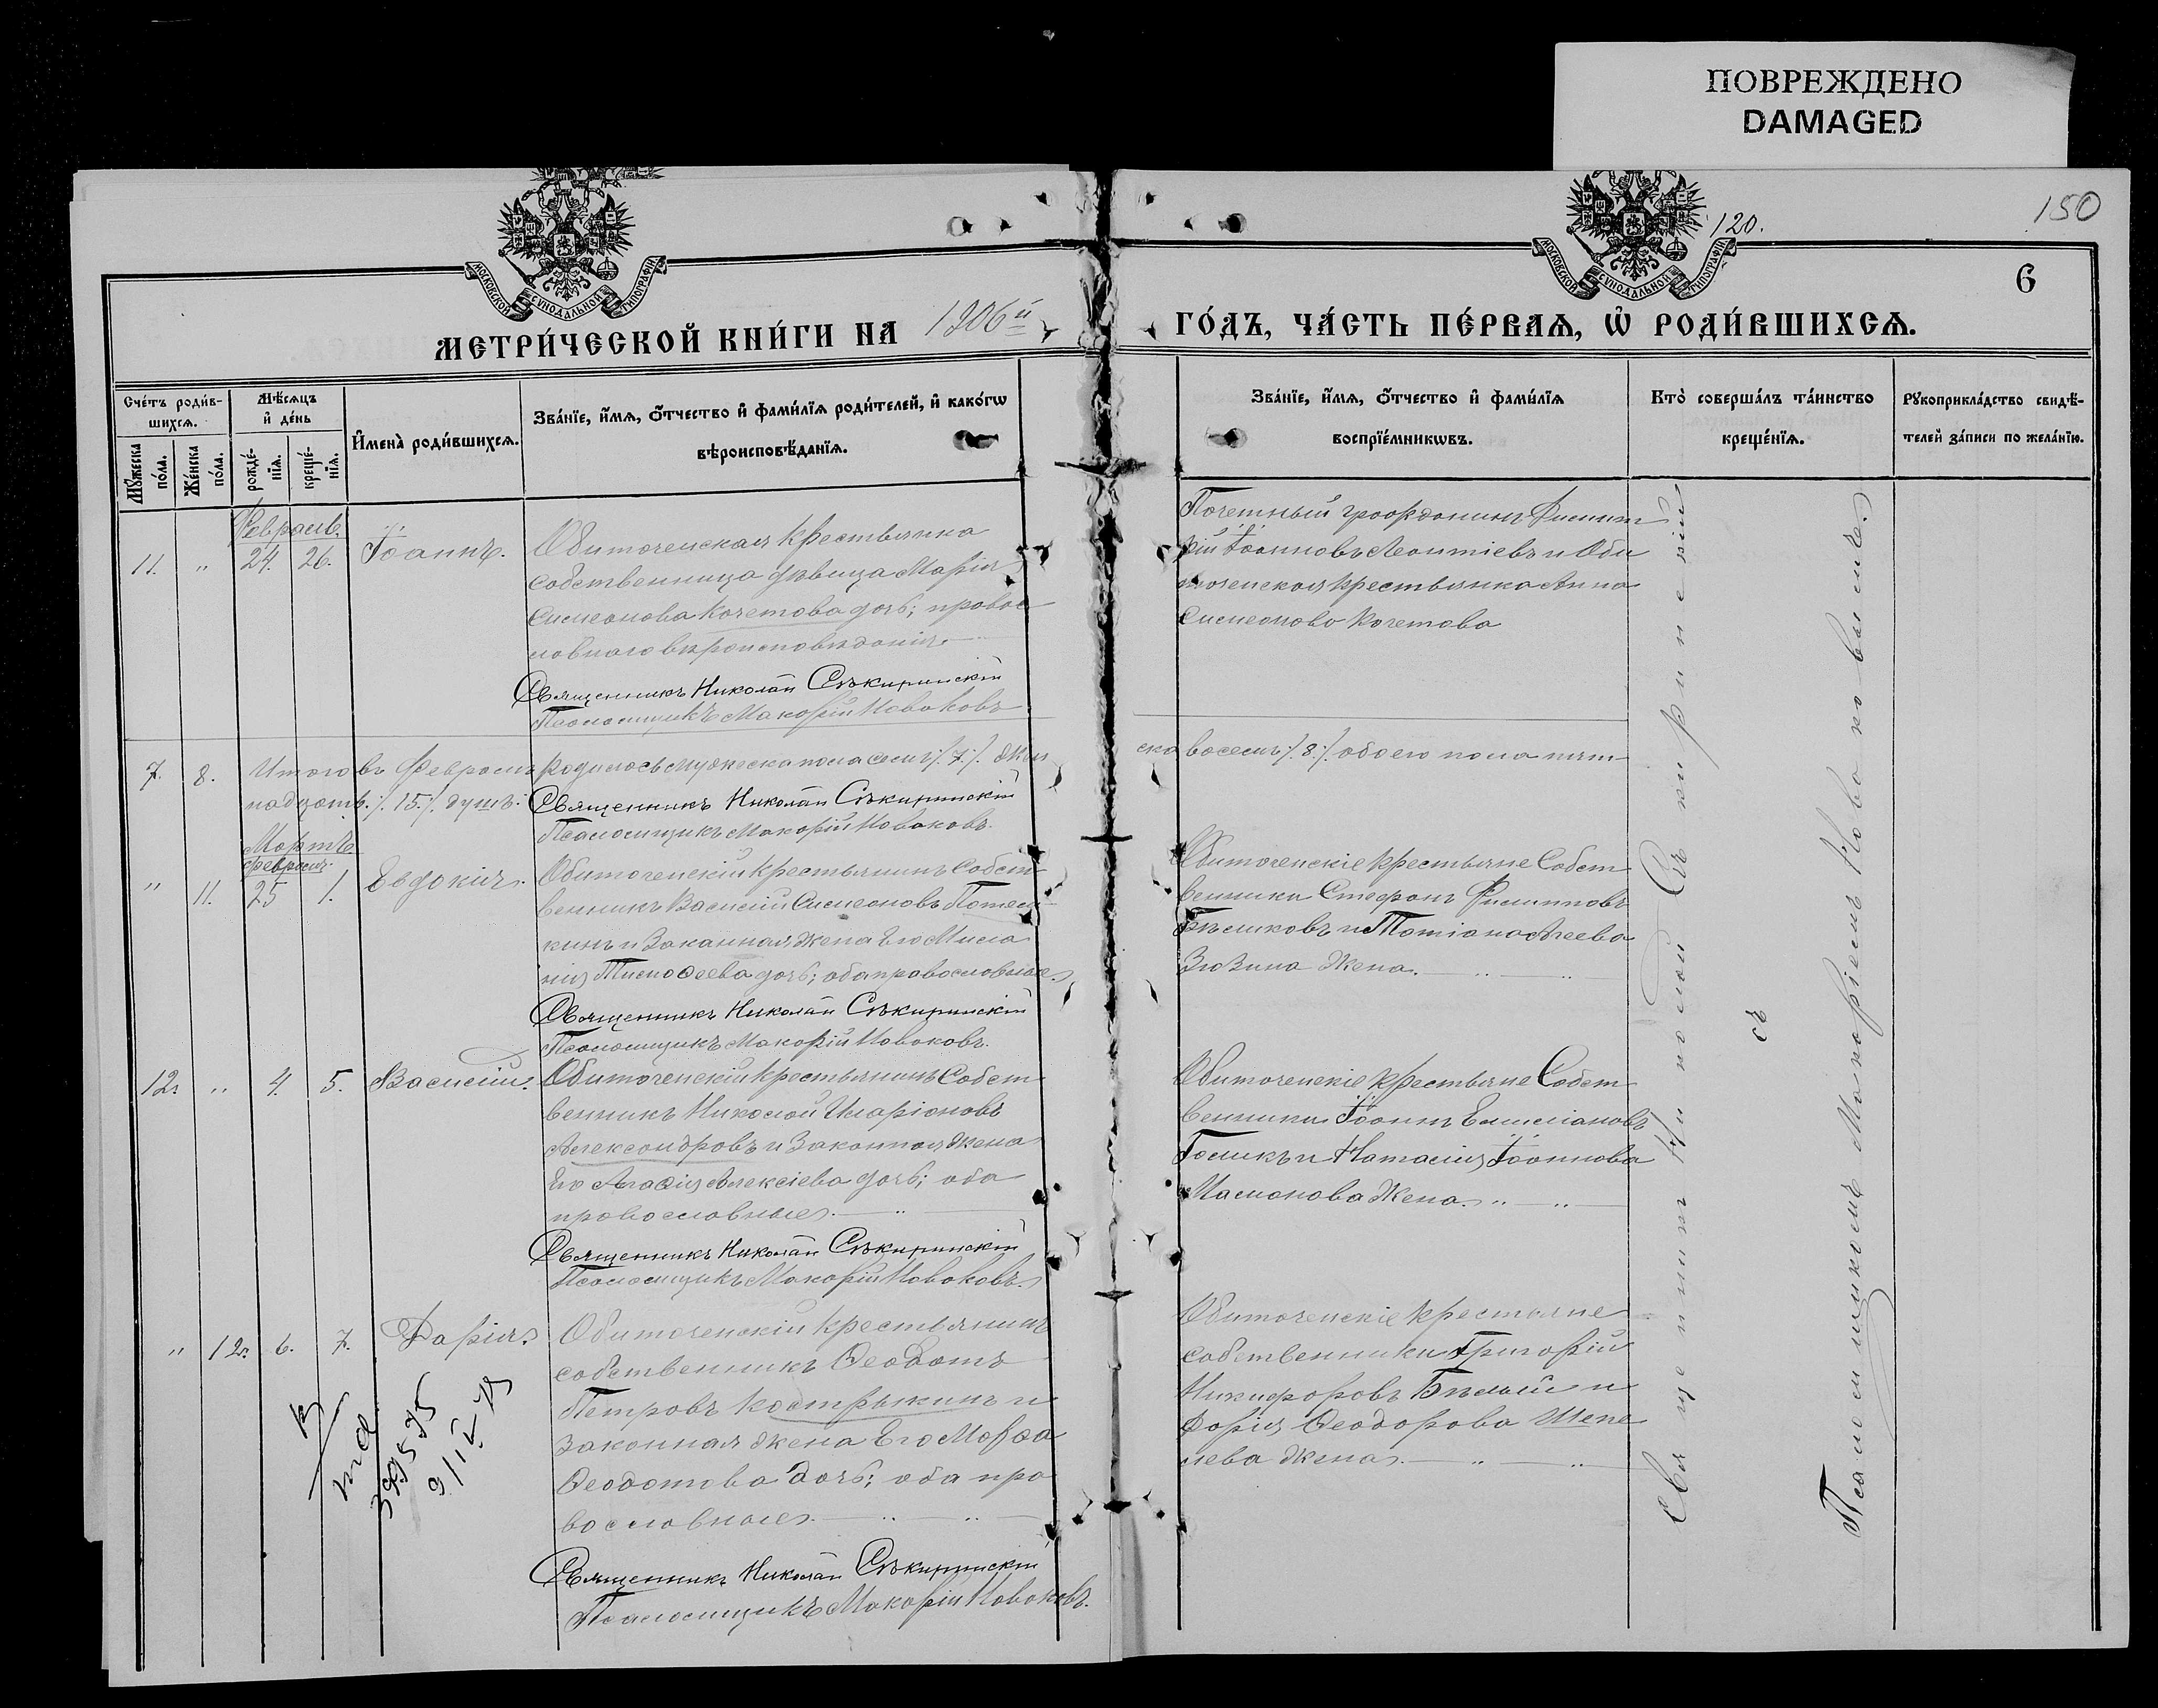 ПОВРЕЖДЕНО
DAMAGED
150
120.
6
МОСКОВСКОЙ СѴНОДАЛЬНОЙ ТИПОГРАФІИ
МОСКОВСКОЙ СѴНОДАЛЬНОЙ ТИПОГРАФІИ
МЕТРИ́ЧЕСКОЙ КНИ́ГИ НА 1906й
ГО́ДЪ, ЧА́СТЬ ПЕ́РВАѦ, Ѡ҆ РОДИ́ВШИХСѦ.
Сче́тъ роди́в-
шихсѧ.
Мѣ́сѧцъ
и҆ де́нь
Мꙋ́жеска
по́ла.
Же́нска
по́ла.
рожде́-
нїѧ.
креще́-
нїѧ.
И҆мена̀ роди́вшихсѧ.
Зва́нїе, и҆́мѧ, ѻ҆́тчество и҆ фами́лїѧ роди́телей, и҆ како́гѡ
вѣроисповѣ́данїѧ.
Зва́нїе, и҆́мѧ, ѻ҆́тчество и҆ фами́лїѧ
воспрїе́мникѡвъ.
Кто̀ соверша́лъ та́инство
креще́нїѧ.
Рꙋкоприкла́дство свидѣ́-
телей за́писи по жела́нїю.
Февраль.
11. " 24. 26. Іоаннъ.
Обиточенская крестьянка
собственница дѣвица Марія
Симеонова Кочетова дочь; правос
лавнаго вѣроисповѣданія.
Священникъ Николай Сѣкиринскій
Псаломщикъ Макарій Новаковъ
Почетный гражданинъ Димит
рій Іоанновъ Леонтіевъ и Оби
точенская крестьянка Анна
Симеонова Кочетова
7. 8. Итого въ Февралѣ родилось мужеска пола семь /.7./. жен
ска восемь /.8./. обоего пола пят
надцать. /.15./. душъ.
Священникъ Николай Сѣкиринскій
Псаломщикъ Макарій Новаковъ.
Мартъ
Февраль.
" 11. 25 1. Евдокія.
Обиточенскій крестьянинъ Собст
венникъ Василій Симеоновъ Потем
кинъ и Законная жена Его Мила
нія Тимофеева дочь; оба православные.
Священникъ Николай Сѣкиринскій
Псаломщикъ Макарій Новаковъ.
Обиточенскіе крестьяне Собст
венники Стефанъ Филипповъ
Бѣликовъ и Татіана Агеева
Зюзина жена.
12. " 4. 5. Василій.
Обиточенскій крестьянинъ Собст
венникъ Николай Иларіоновъ
Александровъ и Законная жена
Его Агафія Алексіева дочь; оба
православные.
Священникъ Николай Сѣкиринскій
Псаломщикъ Макарій Новаковъ.
Обиточенскіе крестьяне Собст
венники Іоаннъ Емиліановъ
Голикъ и Наталія Іоаннова
жена.
" 12. 6. 7. Дарія.
Обиточенскій крестьянинъ
собственникъ Ѳеодотъ
Петровъ Кострыкинъ и
законная жена Его Марѳа
Ѳеодотова дочь; оба пра
вославные.
Священникъ Николай Сѣкиринскій
Псаломщикъ Макарій Новаковъ.
Обиточенскіе крестьяне
собственники Григорій
Никифоровъ Бѣлый и
Дарія Ѳеодорова Шепе
лева жена.
Священникъ Николай Сѣкиринскій
съ
Псаломщикомъ Макаріемъ Новаковымъ.